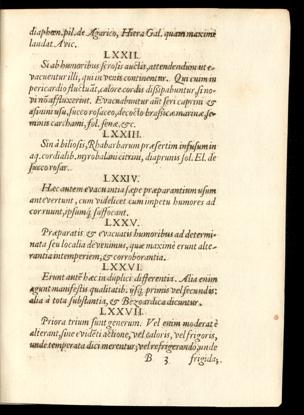 diaphœn. pil. de Agarico, Hiera Gal. quam maximè
laudat Avic.
LXXII.
Si ab humoribus serosis auctis, attendendum ut e-
vacuentur illi, qui in venis continentur. Qui cum in
pericardio fluctuāt, calore cordis dissipabuntur, si no-
vi nō affluxerint. Evacuabuntur aūt seri caprini &
asinini usu, succo rosaceo, decocto brassicæ marinæ, se-
minis carthami, fol. senæ, &c.
LXXIII.
Sin à biliosis, Rhabarbarum præsertim infusum in
aq. cordialib. myrobalani citrini, diaprunis sol. El. de
succo rosar.
LXXIV.
Hæc autem evacuantia sæpe præparantium usum
antevertunt, cum videlicet cum impetu humores ad
cor ruunt, ipsumq́; suffocant.
LXXV.
Præparatis & evacuatis humoribus ad determi-
nata seu localia devenimus, quæ maximè erunt alte-
rantia intemperiem, & corroborantia.
LXXVI.
Erunt autē hæc in duplici differentia. Alia enim
agunt manifestis qualitatib. ijsq́; primis vel secundis:
alia à tota substantia, & Bezoardica dicuntur.
LXXVII.
Priora trium sunt generum. Vel enim moderatè
alterant, sine evidēti actione, vel caloris, vel frigoris,
unde temperata dici merentur; vel refrigerando, unde
B 3 frigida;